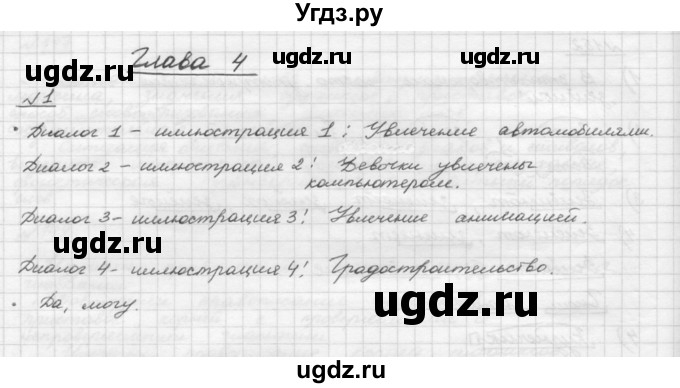 Угдз.ру
Глава 4
№1
• Диалог 1 – иллюстрация 1: Увлечение автомобилями.
Диалог 2 – иллюстрация 2: Девочки увлечены
компьютером.
Диалог 3 – иллюстрация 3: Увлечение анимацией.
Диалог 4 – иллюстрация 4: Градостроительство.
• Да, могу.
ugdz.ru ugdz.ru ugdz.ru
ugdz.ru ugdz.ru
ugdz.ru ugdz.ru ugdz.ru